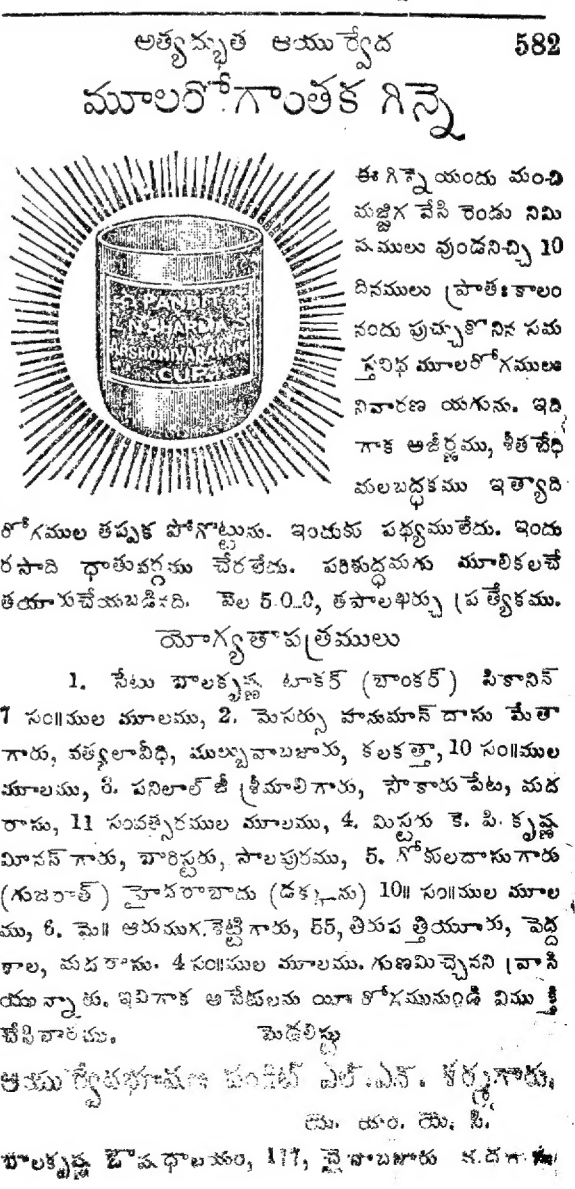 అత్యద్భుత ఆయుర్వేద 582
మూలరోగాంతక గిన్నె
PANDIT
L.N. SHARMA'S
ARSHONIVARANUM
CUP
ఈ గిన్నె యందు మంచి
మజ్జిగ వేసి రెండు నిమి
షములు వుండనిచ్చి 10
దినములు ప్రాతఃకాలం
నందు పుచ్చుకొనిన సమ
స్తవిధ మూలరోగములు
నివారణ యగును. ఇది
గాక అజీర్ణము, శీతబేధి
మలబద్ధకము ఇత్యాది
రోగముల తప్పక పోగొట్టును. ఇందుకు పథ్యములేదు. ఇందు
రసాది ధాతువర్గము చేరలేదు. పరిశుద్ధమగు మూలికలచే
తయారుచేయబడినది. వెల 5_0_0, తపాలఖర్చు ప్రత్యేకము.
యోగ్యతాపత్రములు
1. సేటు బాలకృష్ణ టాకర్ (బాంకర్) పికానిన్
7 సం॥ముల మూలము, 2. మెసర్సు హనుమాన్ దాసు మేతా
గారు, వత్యలావీధి, ముల్బువాబజారు, కలకత్తా, 10 సం॥ముల
మూలము, 3. పనిలాల్ జీ శ్రీమాలిగారు, సౌకారు పేట, మద
రాసు, 11 సంవత్సరముల మూలము, 4. మిస్టరు కె. పి. కృష్ణ
మీనన్ గారు, బారిస్టరు, సాలపురము, 5. గోకులదాసుగారు
(గుజరాత్) హైదరాబాదు (డక్కను) 10॥ సం॥ముల మూల
ము, 6. మె॥ ఆరుముగ శెట్టిగారు, 55, తిరుప త్తియూరు, పెద్ద
శాల, మదరాసు. 4 సం॥ముల మూలము. గుణమిచ్చెనని వ్రాసి
యున్నారు. ఇవిగాక అనేకులను యీ రోగమునుండి విము క్తి
చేసినారము. మెడలిస్టు
ఆయుర్వేదభూషణ పండిట్ ఎల్.ఎన్. శర్మగారు,
యె. యం. యె. సి.
బాలకృష్ణ ఔషధాలయం, 177, చైనాబజారు మదరాసు